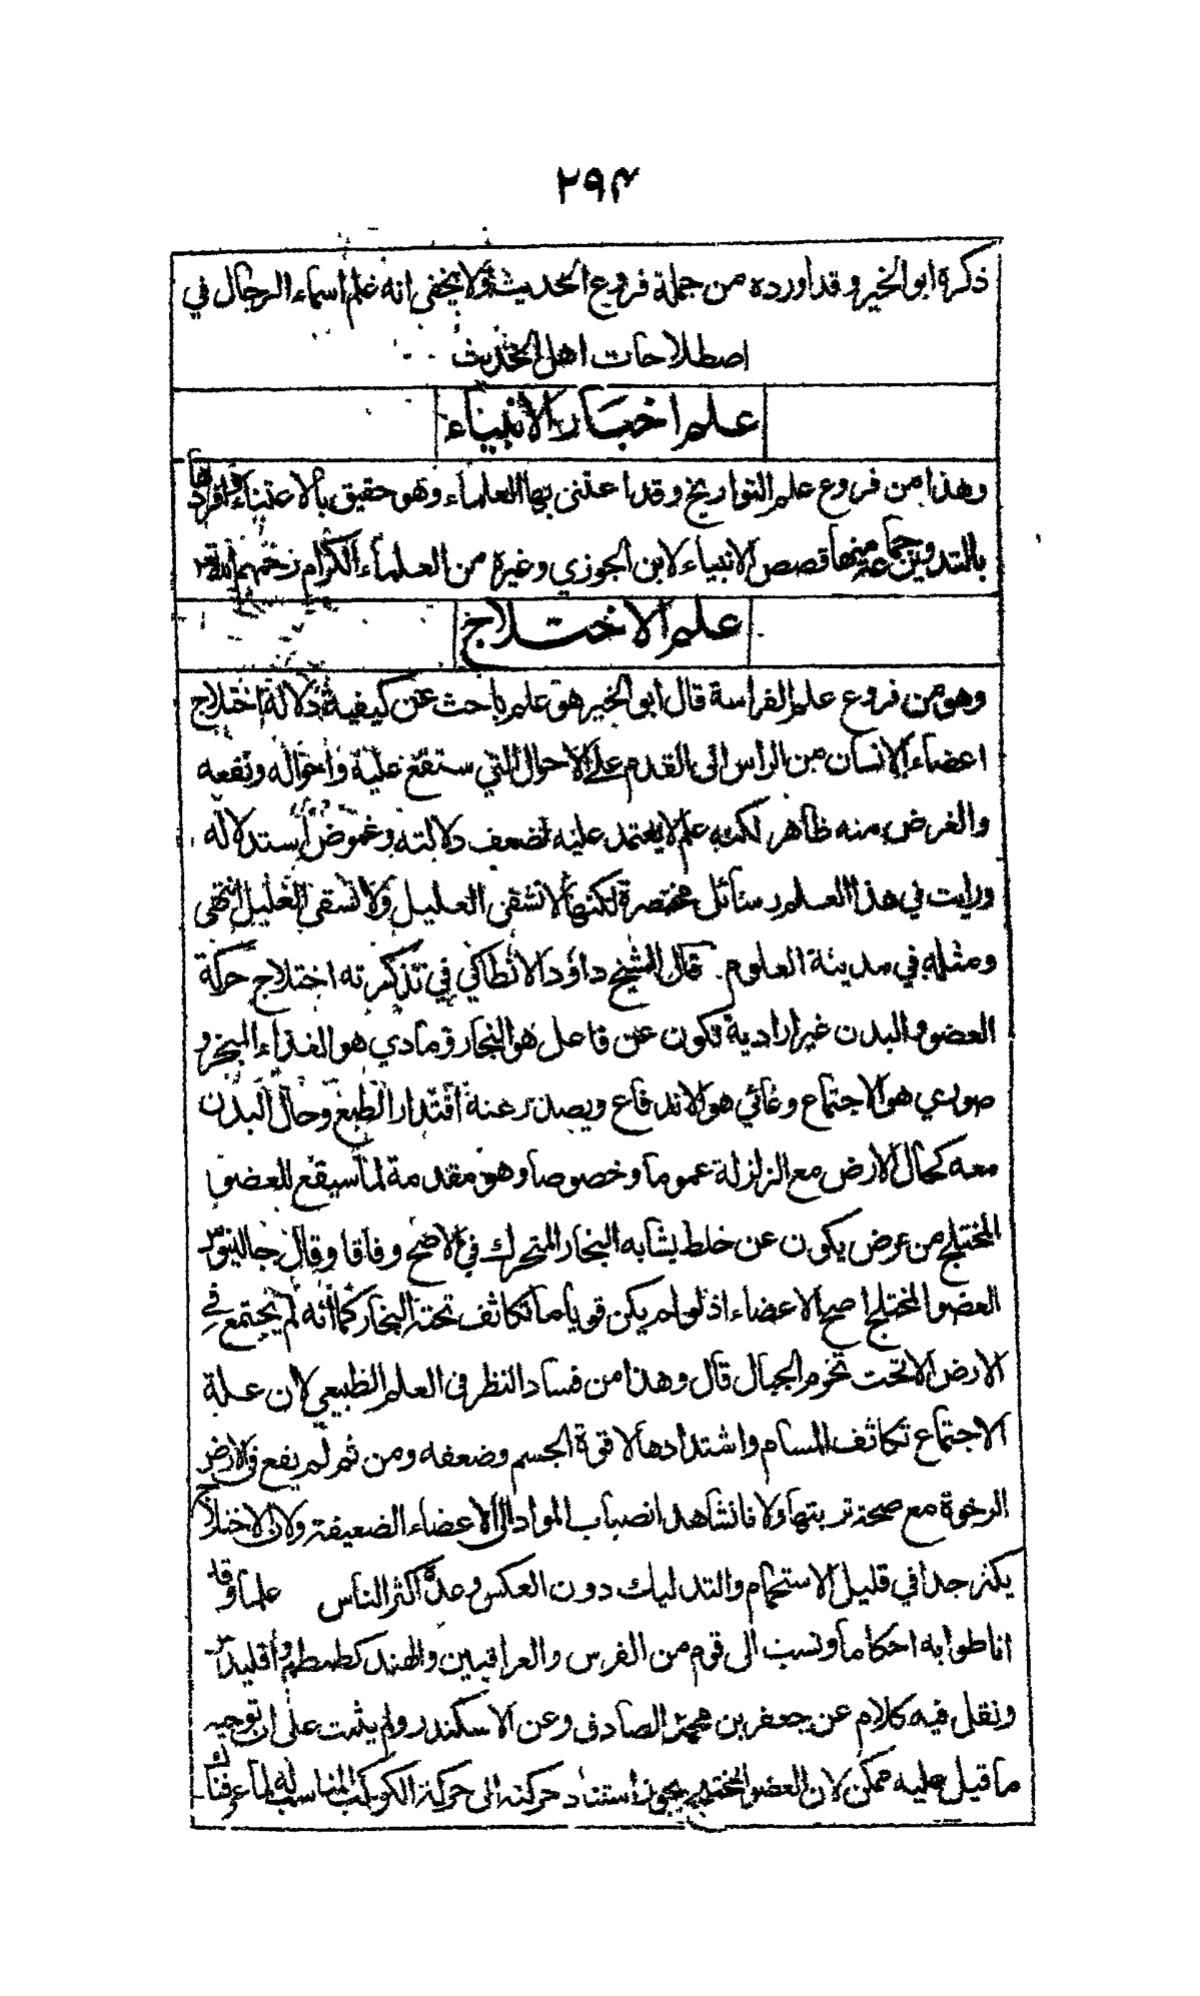 ۲۹۴
ذكره ابو الخير و قد اورده من جملة فروع الحديث ولا يخفى انه علم اسماء الرجال في
اصطلاحات اهل الحديث
علم اخبار الانبياء
وهذا من فروع علم التواريخ وقد اعتنى بها العلماء وهو حقيق بالاعتناء وافردها
بالتدوين جماعة منها قصص الانبياء لابن الجوزي وغيره من العلماء الكرام رحمهم الله تعالى
علم الاختلاج
وهو من فروع علم الفراسة قال ابو الخير هو علم باحث عن كيفية دلالة اختلاج
اعضاء الانسان من الراس الى القدم على الاحوال التي ستقع عليه واحواله ونفعه
والغرض منه ظاهر لكنه علم لا يعتمد عليه لضعف دلالته وغموض استدلاله
ورايت في هذا العلم رسائل مختصرة لكنها لا تشفى العليل ولا تسقى الغليل انتهى
ومثله في مدينة العلوم قال الشيخ داؤد الانطاكي في تذكرته اختلاج حركة
العضو والبدن غير ارادية تكون عن فاعل هو البخار ومادي هو الغذاء المبخر و
صوري هو الاجتماع وغائي هو الاندفاع ويصدر عنه اقتدار الطبع وحال البدن
معه كحال الارض مع الزلزلة عموما وخصوصا وهو مقدمة لما سيقع للعضو
المختلج من عرض يكون عن خلط يشابه البخار المتحرك في الاصح وفاقا وقال جالينوس
العضو المختلج اصح الاعضاء اذ لو لم يكن قويا ما تكاثف تحته البخار كما انه لم يجتمع في
الارض الا تحت تخوم الجبال قال وهذا من فساد النظر فى العلم الطبيعي لان علة
الاجتماع تكاثف المسام واشتدادها لا قوة الجسم وضعفه ومن ثم لم يقع فى الارض
الرخوة مع صحة تربتها ولانا نشاهد انصباب المواد الى الاعضاء الضعيفة ولان الاختلاج
يكثر جدا في قليل الاستحمام والتدليك دون العكس وعده اكثر الناس علما وقد
اناطوا به احكاما ونسب الى قوم من الفرس والعراقيين والهند كطمطم واقليدس
ونقل فيه كلام عن جعفر بن محمد الصادق وعن الاسكندر ولم يثبت على ان توجيه
ما قيل عليه ممكن لان العضو المختلج يجوز استناد حركته الى حركة الكوكب المناسب له لما عرفناك